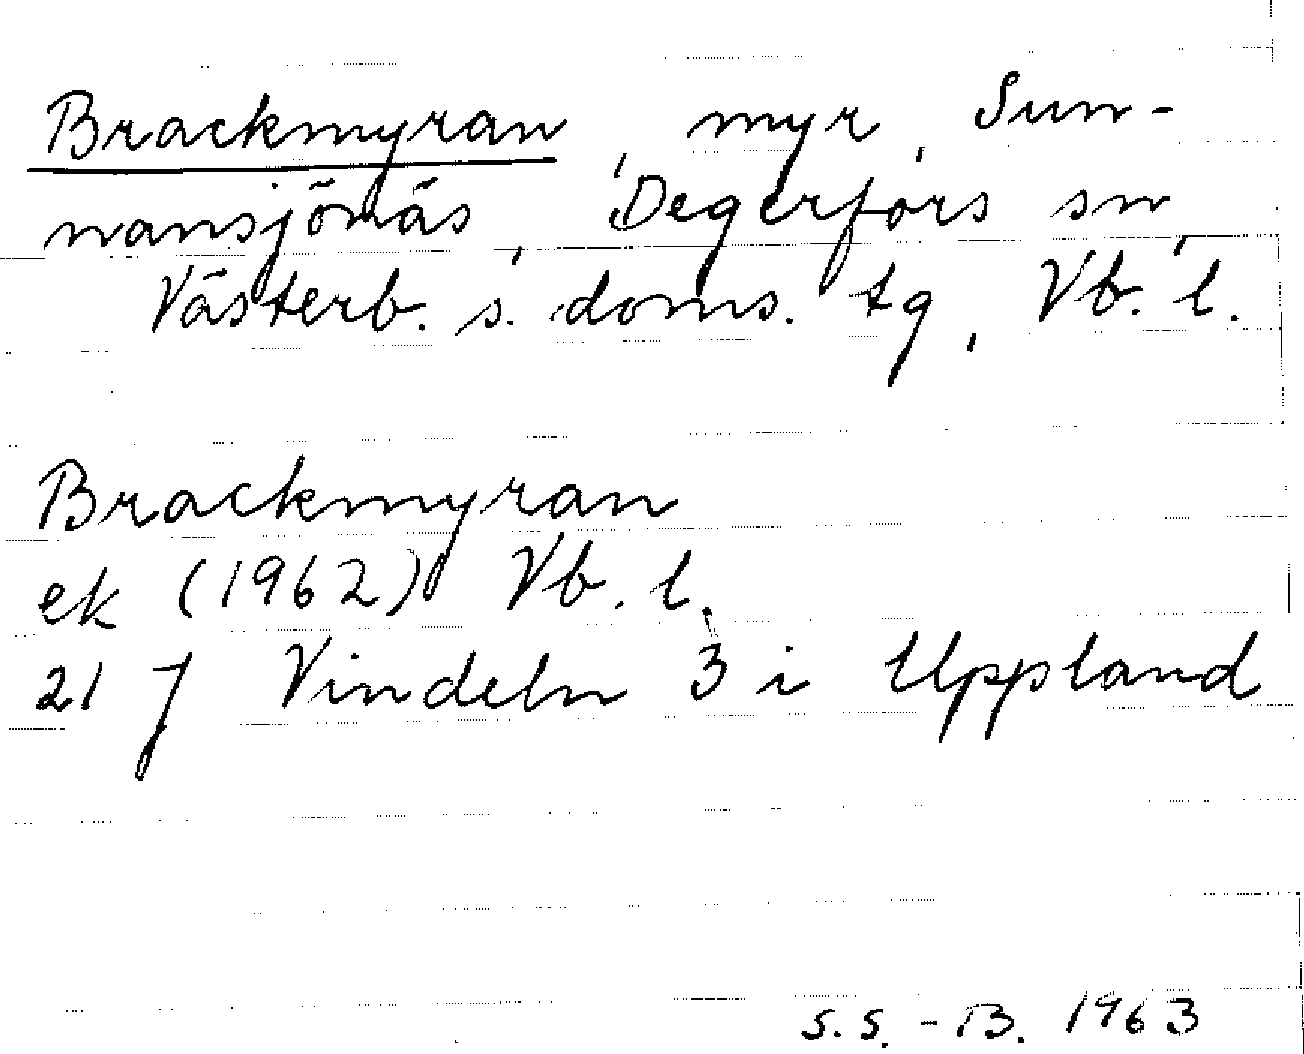 Brackmyran, myr, Sun-
nansjönäs, Degerfors sn,
Västerb. s. doms. tg, Vb. l.
Brackmyran
ek (1962) Vb. l.
21 J Vindeln 3 i Uppland
S.S.-B. 1963